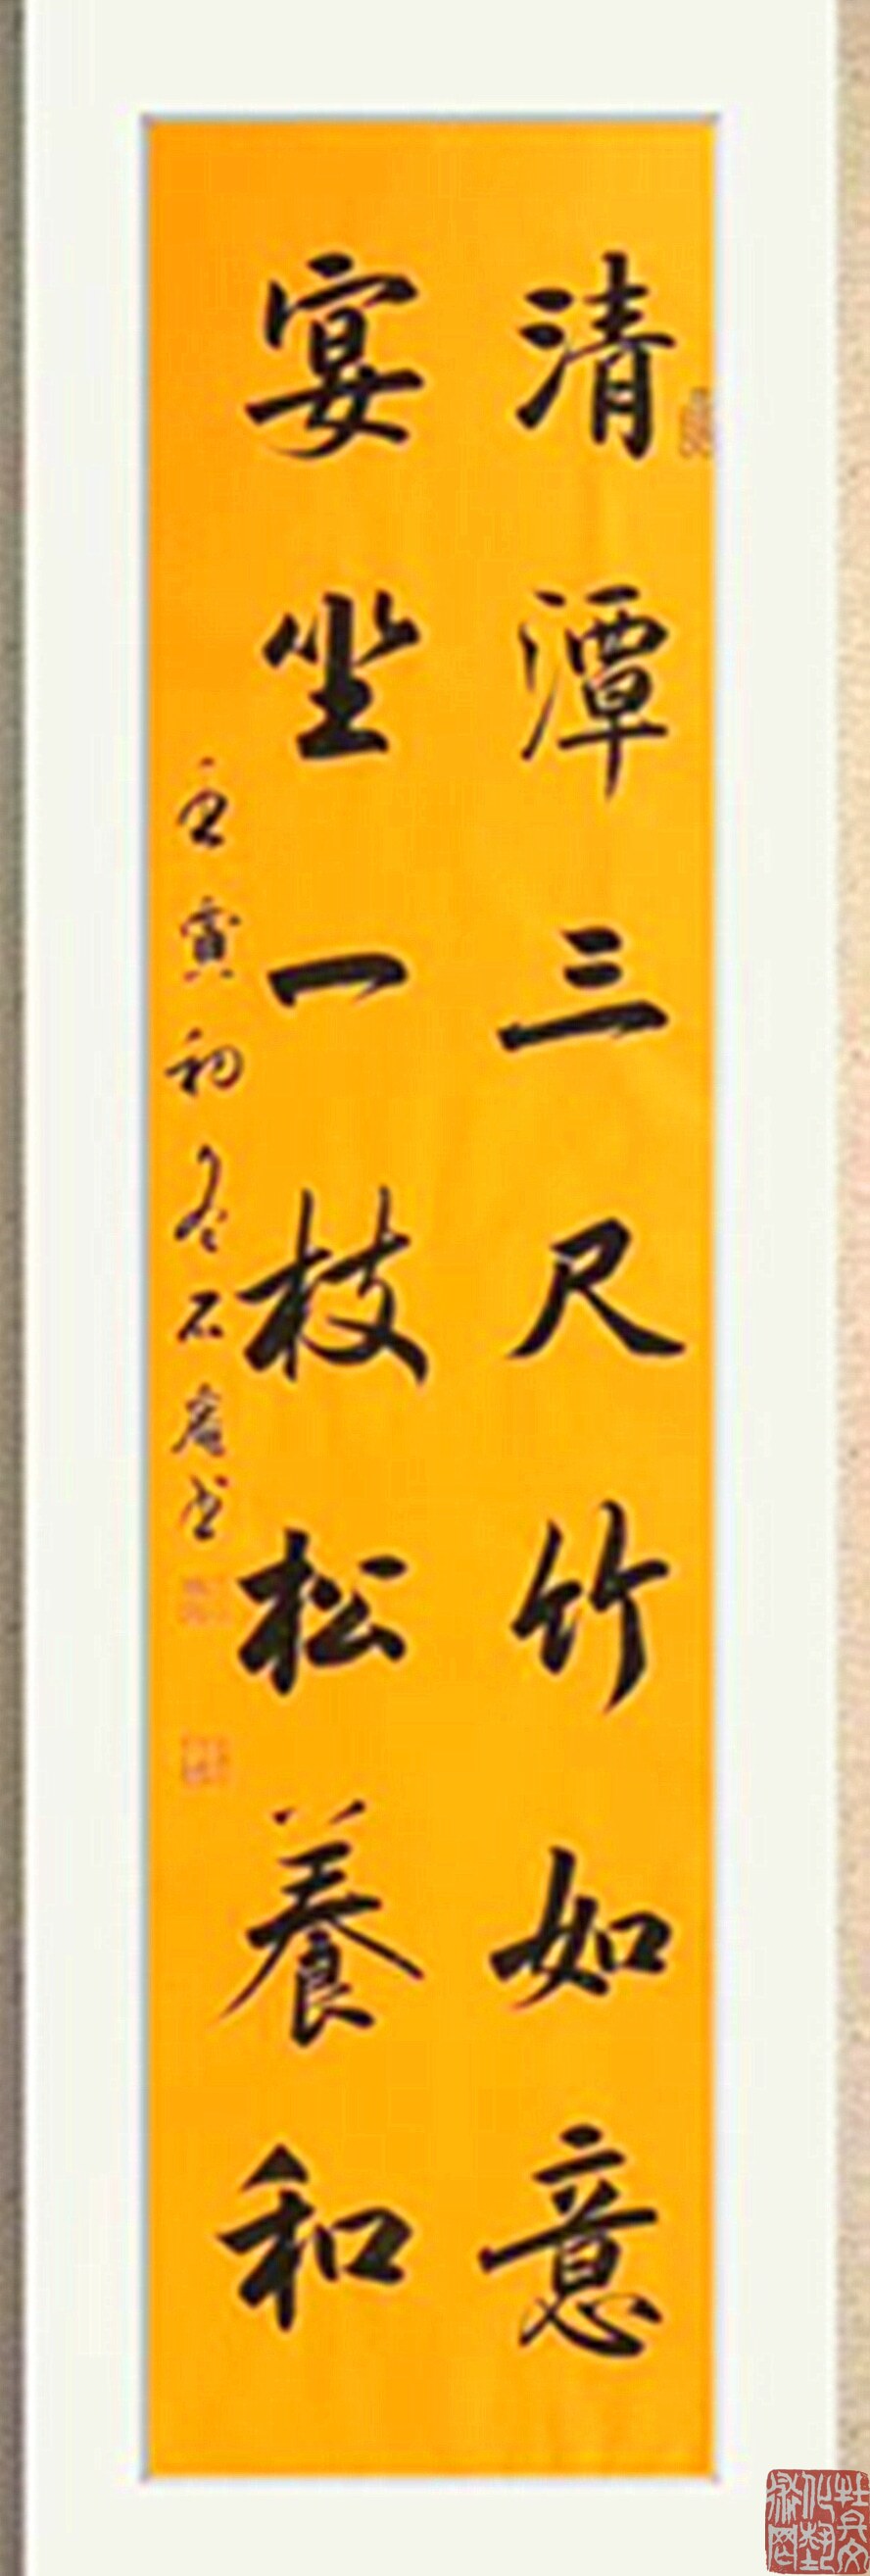 清潭三尺竹如意
宴坐一枝松養和
壬寅初冬石庵書